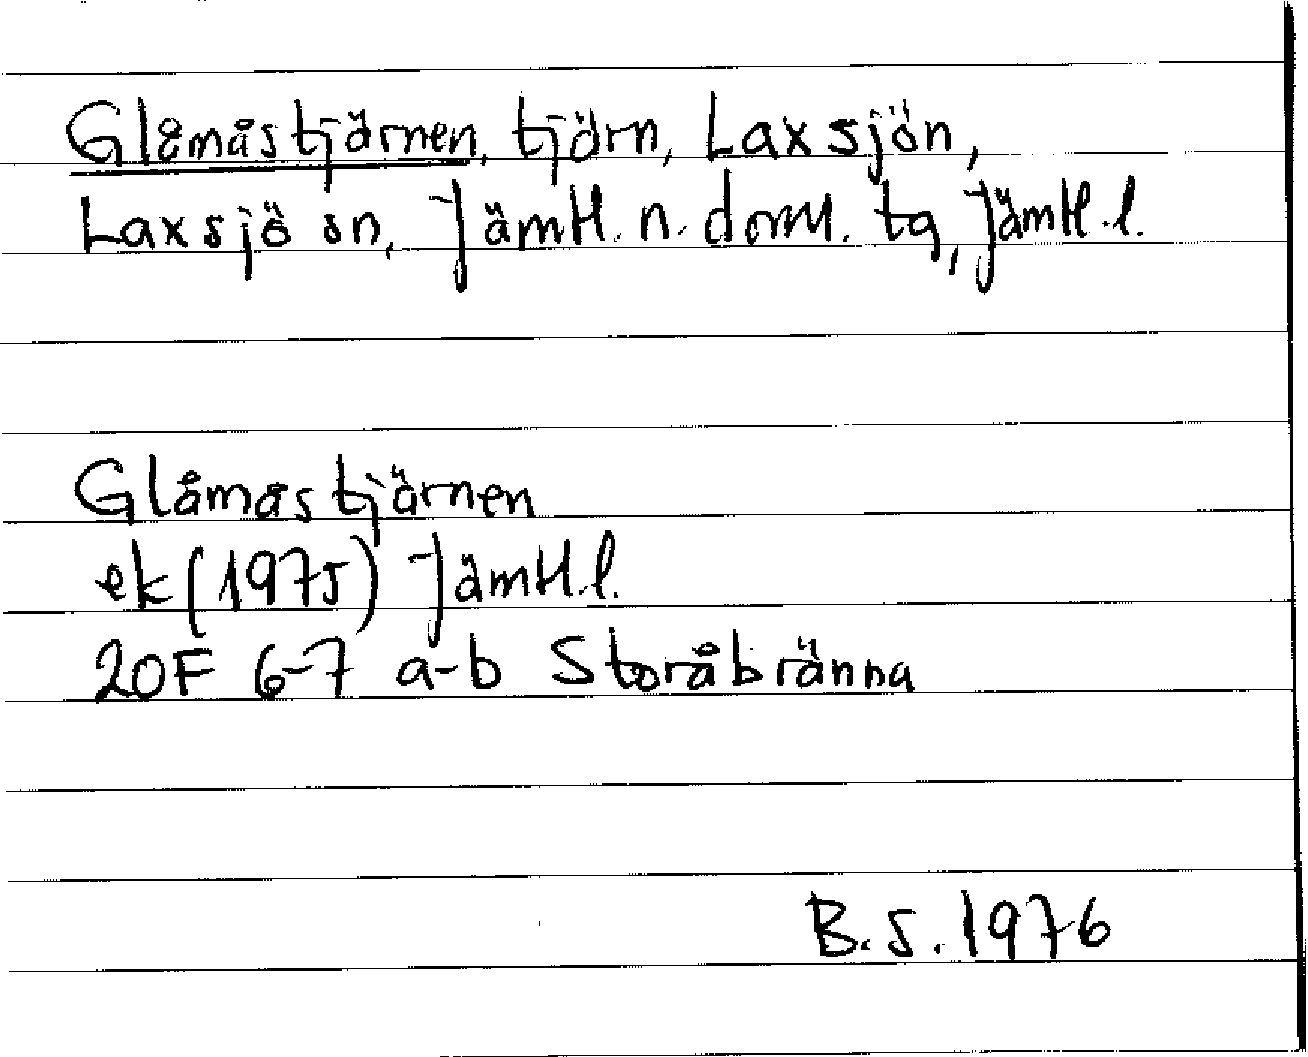 Glåmåstjärnen, tjärn, Laxsjön,
Laxsjö sn, Jämtl. n. doms. tg, Jämtl. l.
Glåmåstjärnen
ek (1975) Jämtl. l.
20F 6-7 a-b Storåbränna
B.S. 1976